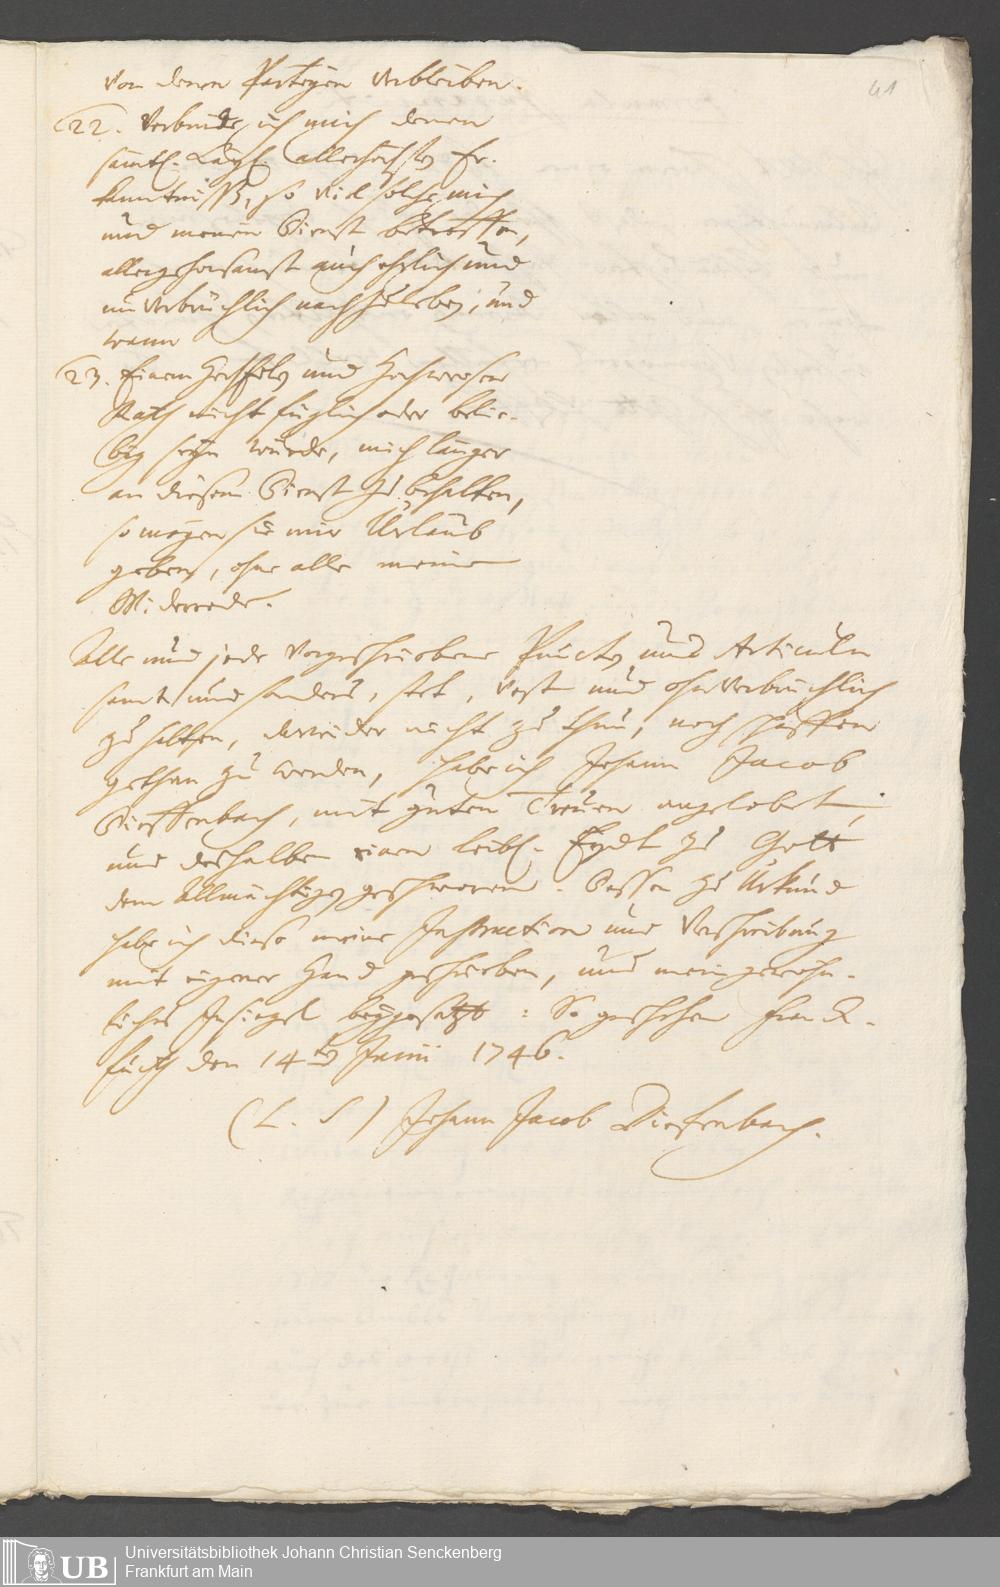 41
von denen Partheyen verbleiben.
22. Verbinde ich mich denen
sämtl. Kayß. allerhöchsten Er-
kanntnißen, so viel solche mich
und meinen Dienst betreffen,
allergehorsamst auch ehrlich und
unverbrüchlich nachzuleben, und
wann
23. Einem HochEdlen und Hochweisen
Rath nicht füglich oder belie-
big seyn würde, mich länger
an diesem Dienst zu behalten,
so mögen sie mir Urlaub
geben, ohne alle meine
Widerrede.
Alle und jede vorgeschriebene Puncten und Articuln
samt und sonders, stet, vest und ohnverbrüchlich
zu halten, darwider nicht zu thun, noch schaffen
gethan zu werden, habe ich Johann Jacob
Dieffenbach, mit guten Treuen angelobet,
und deshalben einen leibl. Eydt zu Gott
dem Allmächtigen geschworen. Dessen zu Urkund
habe ich diese meine Instruction und Verschreibung
mit eigener Hand geschrieben, und mein gewöhn-
liches Insiegel beygesetzt: So geschehen Franck-
furth den 14ten Junii 1746.
(L. S) Johann Jacob Diefenbach.
UB
Universitätsbibliothek Johann Christian Senckenberg
Frankfurt am Main